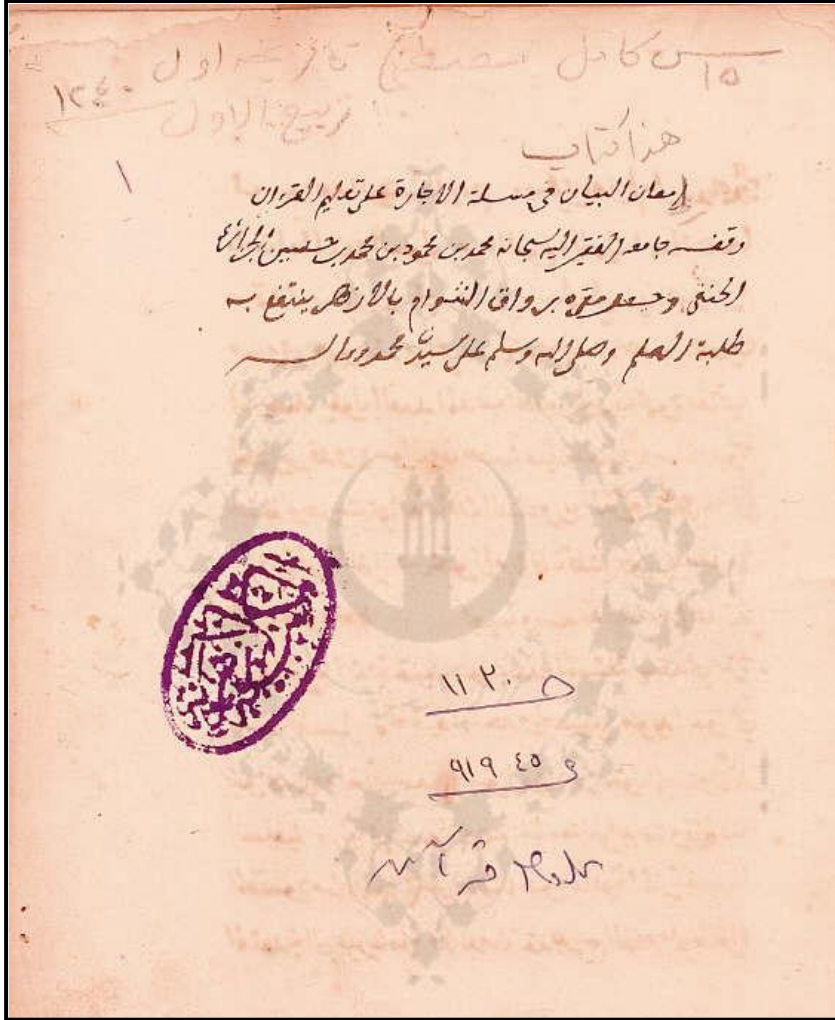 كامل تاريخه اول
١٥
ربيع الاول
١٢٤٠
هذا كتاب
١
امعان البيان في مسئلة الاجارة على تعليم القران
وقفه جامعه الفقير اليه سبحانه محمد بن محمود بن محمد بن حسين الجزائري
الحنفي وجعل مقره برواق الشوام بالازهر ينتفع به
طلبة العلم وصلى الله وسلم على سيدنا محمد واله
١١٢٠
٤٥ ٩١٩
علوم قرآن